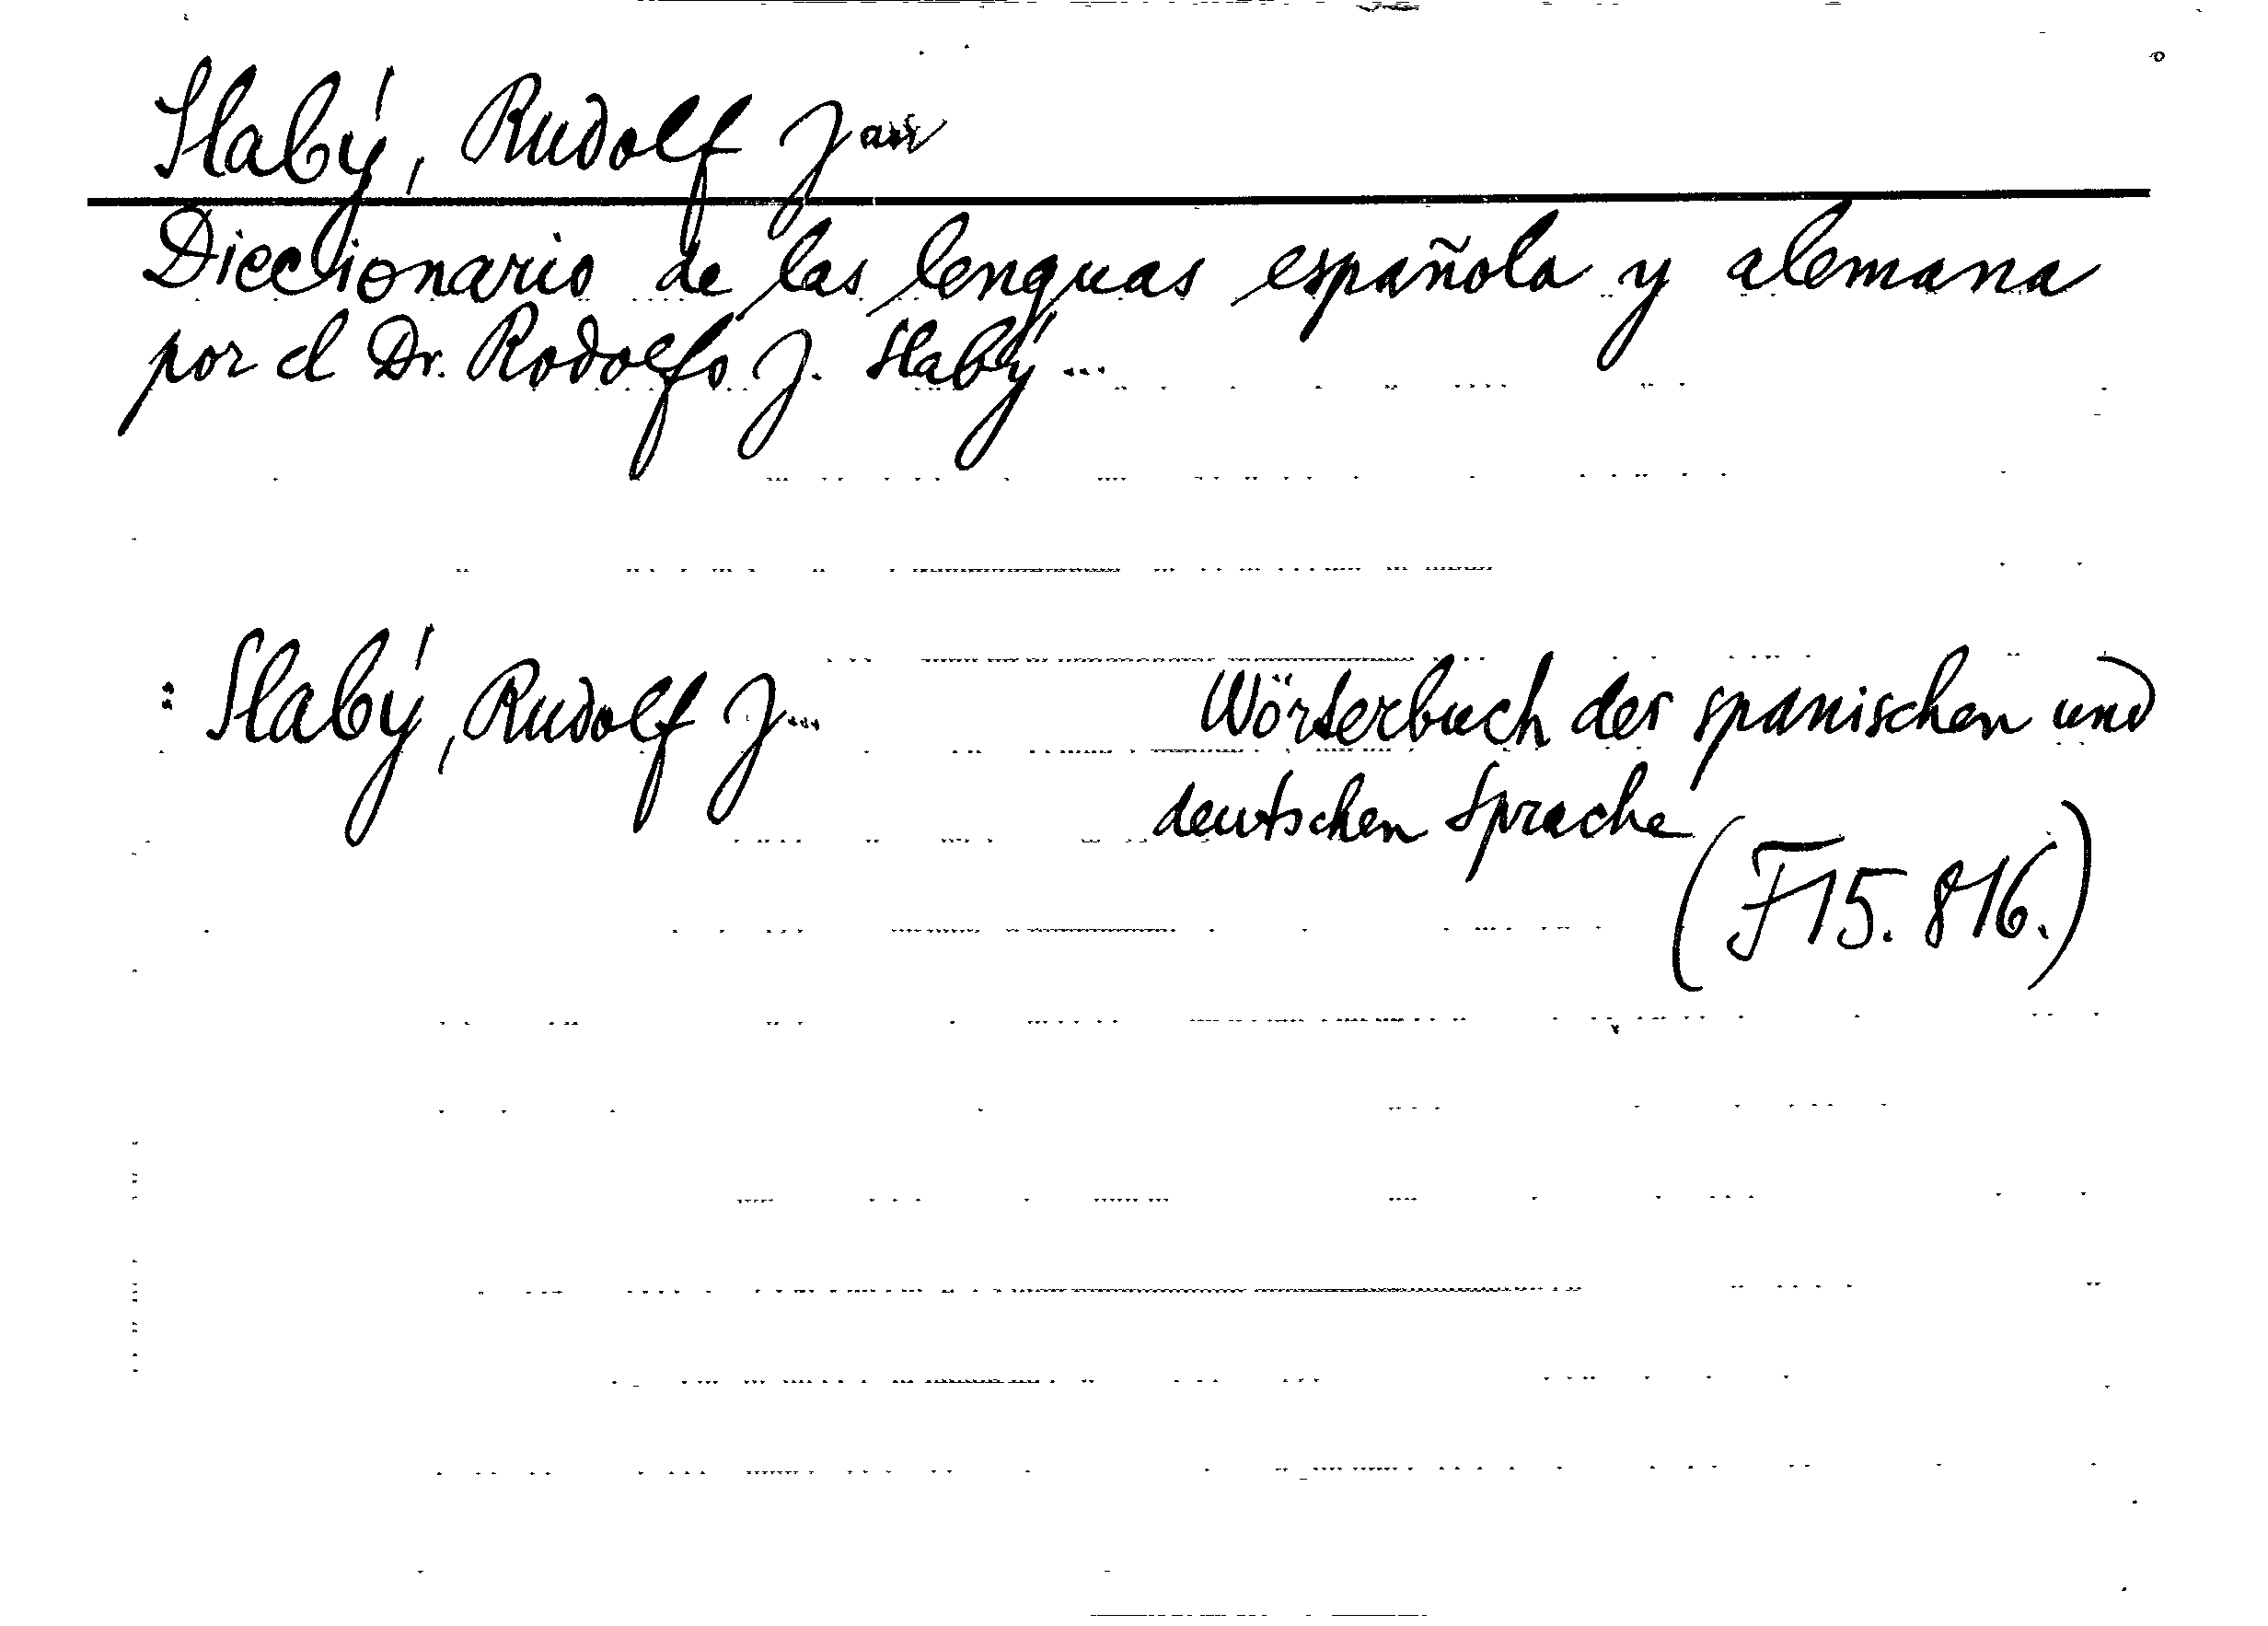 Slabý, Rudolf Jan
Diccionario de las lenguas española y alemana
por el Dr. Rodolfo J. Slabý ...
: Slabý, Rudolf J... Wörterbuch der spanischen und
deutschen Sprache
(F 15.816.)